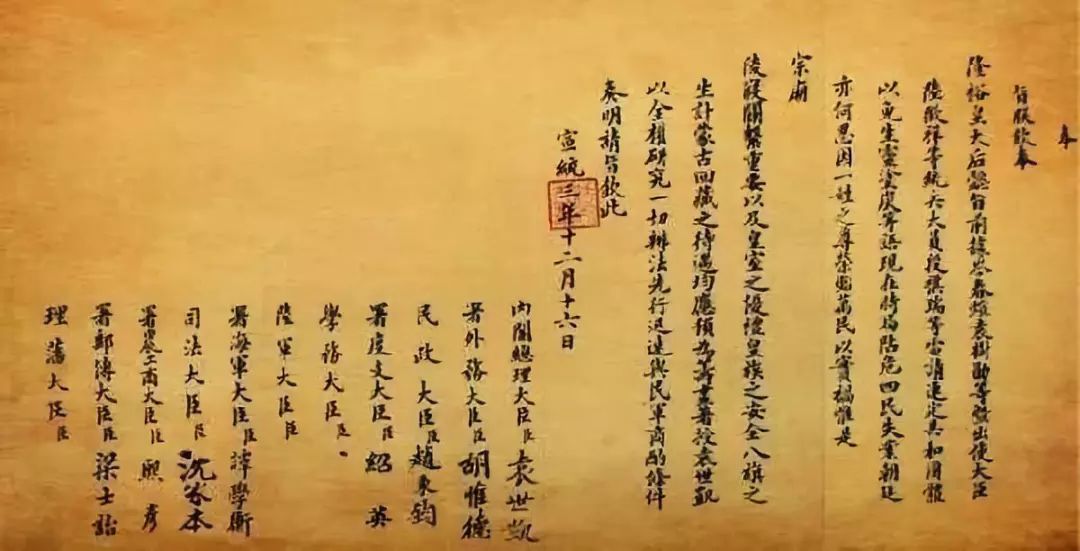 奉
旨朕欽奉
隆裕皇太后懿旨前據岑春煊袁樹勛等暨出使大臣
陸徵祥等統兵大員段祺瑞等電請速定共和國體
以免生靈塗炭等語現在時局阽危四民失業朝廷
亦何忍因一姓之尊榮貽萬民以實禍惟是
宗廟
陵寢關繫重要以及皇室之優禮皇族之安全八旗之
生計蒙古回藏之待遇均應預為籌畫著授袁世凱
以全權研究一切辦法先行迅速與民軍商酌條件
奏明請旨欽此
宣統三年十二月十六日
內閣總理大臣臣袁世凱
署外務大臣臣胡惟德
民政大臣臣趙秉鈞
署度支大臣臣紹英
學務大臣臣
陸軍大臣臣
署海軍大臣臣譚學衡
司法大臣臣沈家本
署農工商大臣臣熙彥
署郵傳大臣臣梁士詒
理藩大臣臣